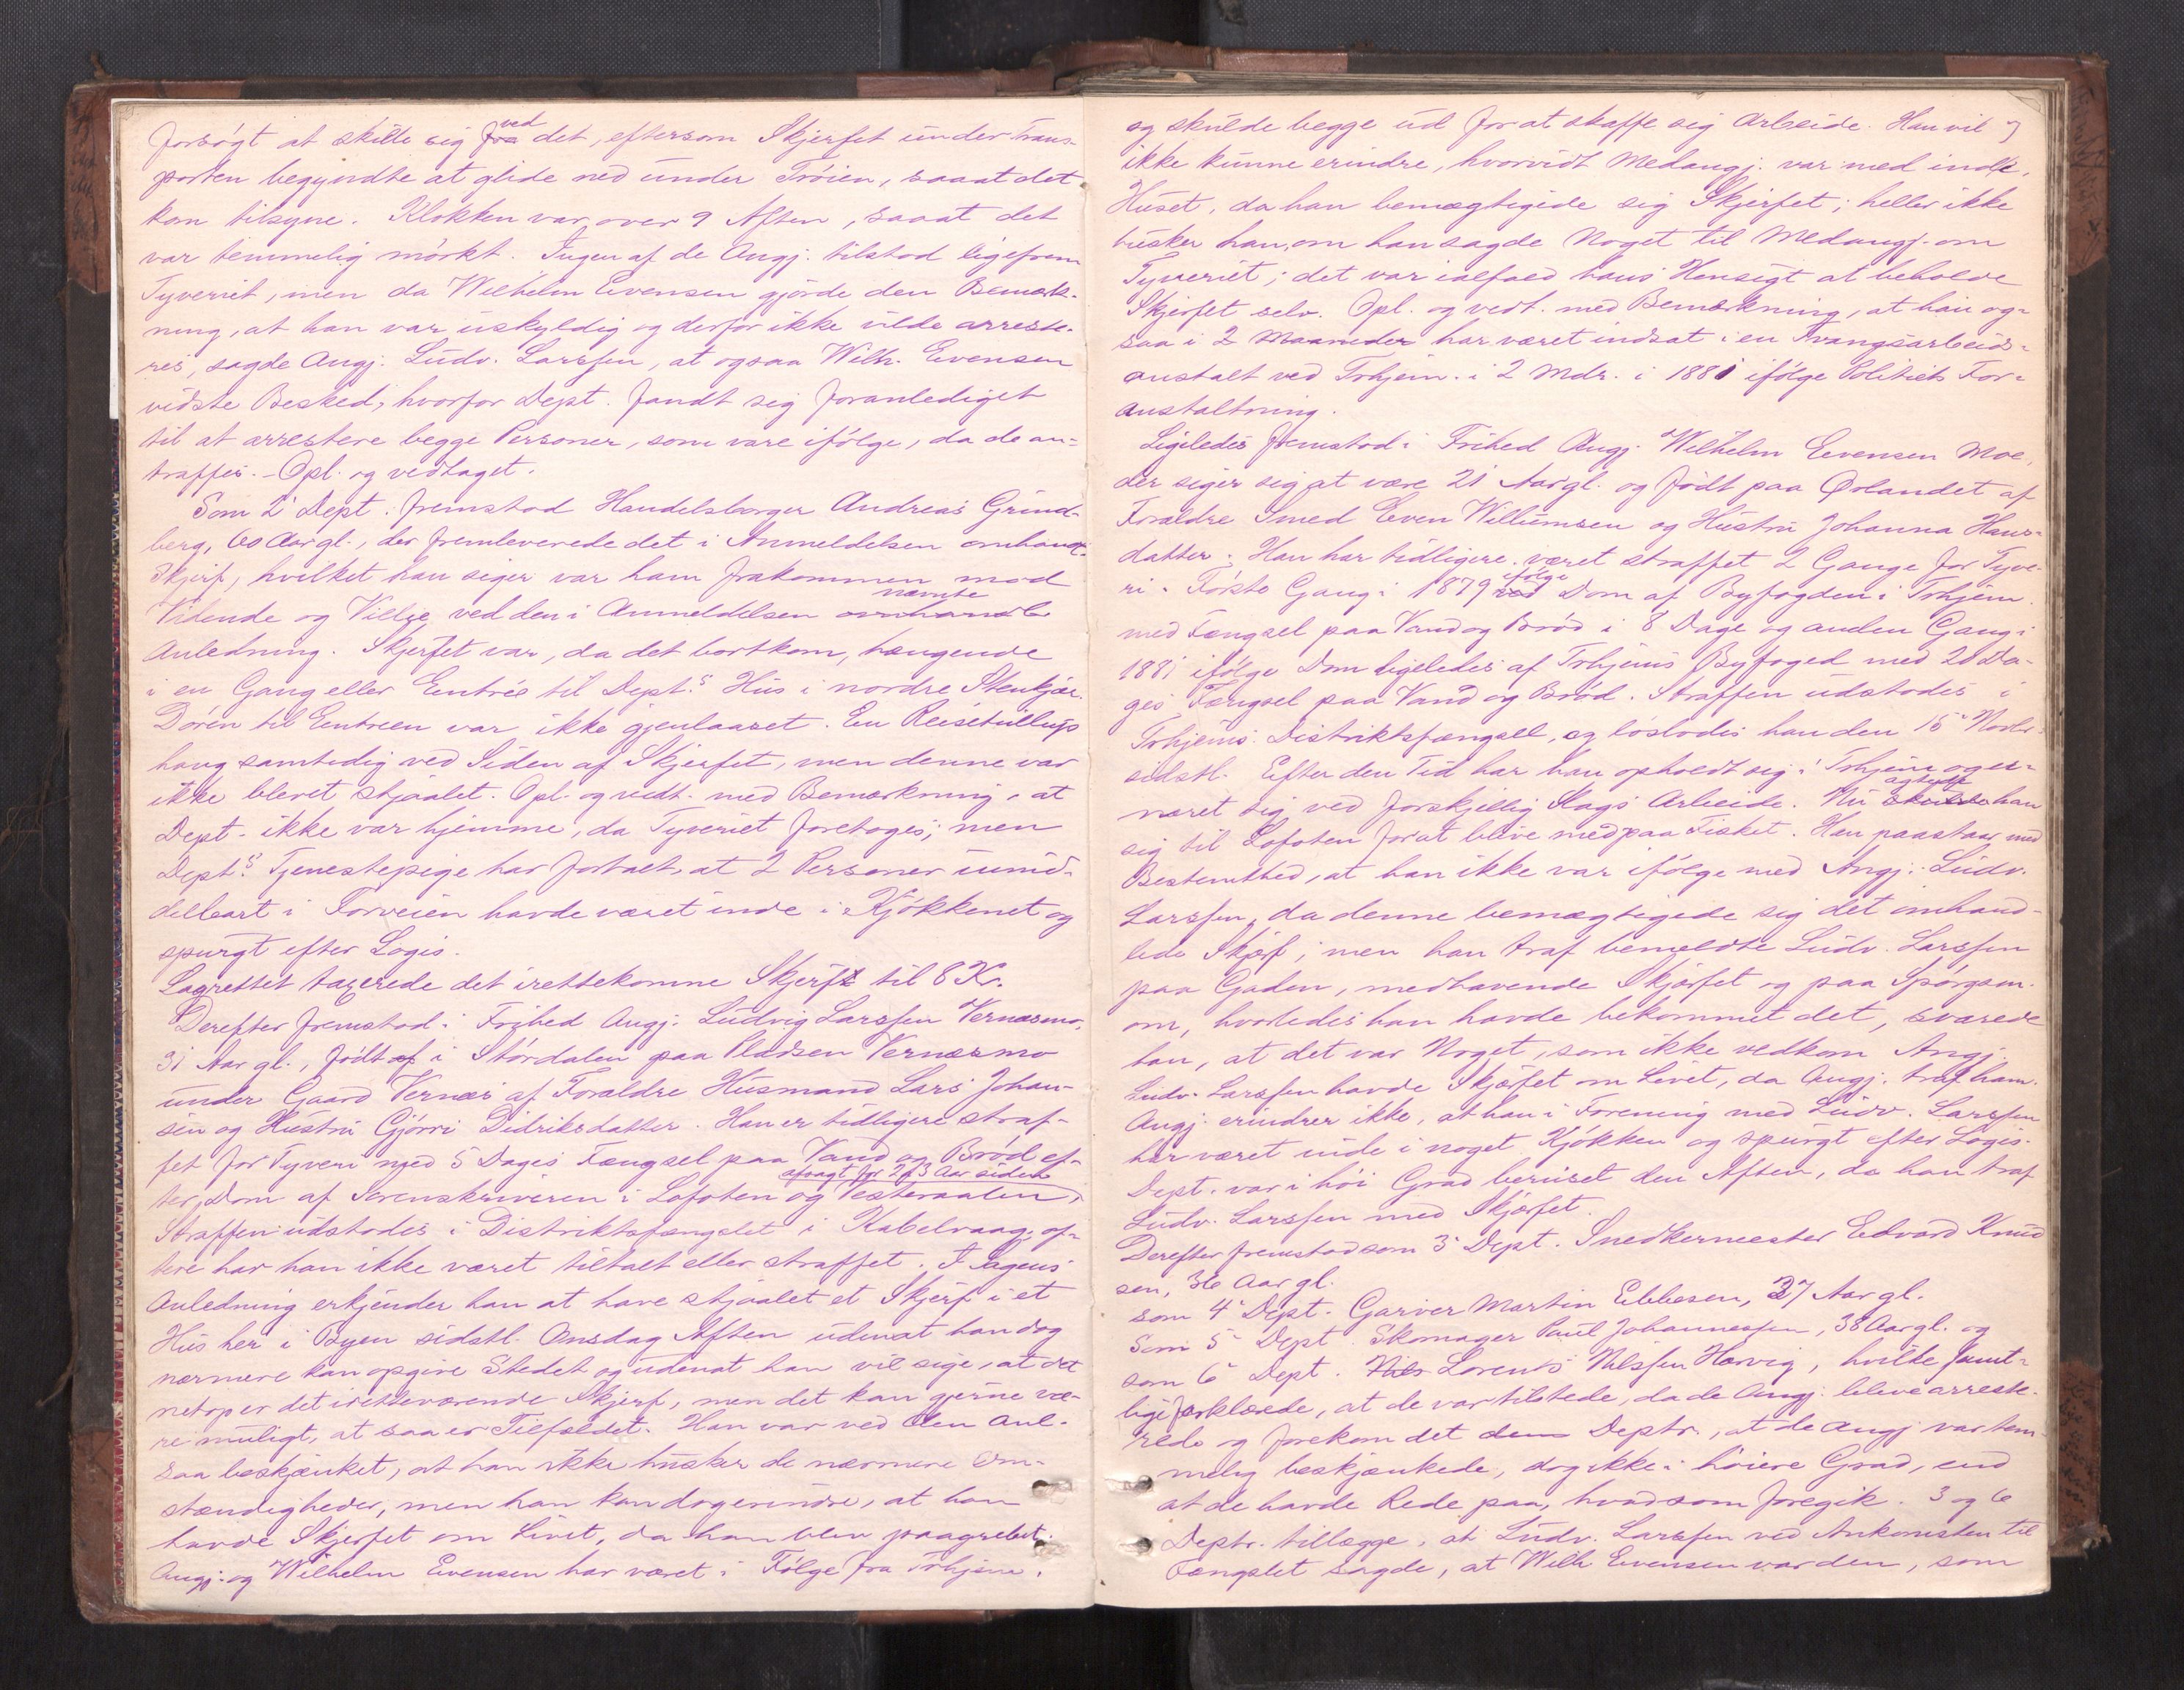 forsøgt at skille sig fra ved det, eftersom Skjerfet under Trans-
porten begyndte at glide ned under Trøien, saaat det
kom tilsyne. Klokken var over 9 Aften, saaat det
var temmelig mørkt. Ingen af de Angj. tilstod ligefrem
Tyveriet, men da Wilhelm Evensen gjorde den Bemærk-
ning, at han var uskyldig og derfor ikke vilde arreste-
res, sagde Angj. Ludv. Larssen, at ogsaa Wilh. Evensen
vidste Besked, hvorfor Dept. fandt sig foranlediget
til at arrestere begge Personer, som vare ifølge, da de an-
traffes. Opl. og vedtaget.
Som 2 Dept. fremstod Handelsborger Andreas Grind-
berg, 60 Aar gl., der fremleverede det i Anmeldelsen omhand.
Skjerf, hvilket han siger var ham frakommen mod
Vidende og Villie ved den i Anmeldelsen omhandle nævnte
Anledning. Skjerfet var, da det bortkom, hængende
i en Gang eller Entrée til Dept.s Hus i nordre Stenkjær.
Døren til Entreen var ikke gjenlaaset. En Reisetullup
hang samtidig ved Siden af Skjerfet, men denne var
ikke blevet stjaalet. Opl. og vedt. med Bemærkning, at
Dept. ikke var hjemme, da Tyveriet foretoges; men
Dept.s Tjenestepige har fortalt, at 2 Personer umid-
delbart i Forveien havde været inde i Kjøkkenet og
spurgt efter Logis.
Lagrettet taxerede det irettekomne Skjerf til 8 Kr.
Derefter fremstod i Frihed Angj. Ludvig Larssen Vernæsmo,
31 Aar gl., født af i Størdalen paa Pladsen Vernæsmo
under Gaard Vernæs af Forældre Husmand Lars Johan-
sen og Hustru Gjørri Didriksdatter. Han er tidligere straf-
fet for Tyveri med 5 Dages Fængsel paa Vand og Brød ef-
ter Dom af Sorenskriveren i Lofoten og Vesteraalen, afsagt for 2 a 3 Aar siden
Straffen udstodes i Distriktsfængslet i Kabelvaag; of-
tere har han ikke været tiltalt eller straffet. I Sagens
Anledning erkjender han at have stjaalet et Skjerf i et
Hus her i Byen sidstl. Onsdag Aften udenat han dog
nærmere kan opgive Stedet og udenat han vil sige, at det
netop er det iretteværende Skjerf, men det kan gjerne væ-
re muligt, at saa er Tilfældet. Han var ved den Anl.
saa beskjænket, at han ikke husker de nærmere Om-
stændigheder, men han kan dog erindre, at han
havde Skjerfet om Livet, da han blev paagrebet.
Angj. og Wilhelm Evensen har været i Følge fra Trhjem.
og skulde begge ud forat skaffe sig Arbeide. Han vil og
ikke kunne erindre, hvorvidt Medangj. var med inde i
Huset, da han bemægtigede sig Skjerfet; heller ikke
husker han, om han sagde Noget til Medangj. om
Tyveriet; det var ialfald hans Hensigt at beholde
Skjerfet selv. Opl. og vedt. med Bemærkning, at han og-
saa i 2 Maaneder har været indsat i en Tvangsarbeids-
anstalt ved Trhjem. i 2 Mdr. i 1881 ifølge Politiets For-
anstaltning.
Ligeledes fremstod i Frihed Angj. Wilhelm Evensen Moe,
der siger sig at være 21 Aar gl. og født paa Ørlandet af
Forældre Smed Even Willumsen og Hustru Johanna Hans-
datter. Han har tidligere været straffet 2 Gange for Tyve-
ri. Første Gang i 1879 ved ifølge Dom af Byfogden i Trhjem.
med Fængsel paa Vand og Brød i 8 Dage og anden Gang i
1881 ifølge Dom ligeledes af Trhjems Byfoged med 20 Da-
ges Fængsel paa Vand og Brød. Straffen udstodes i
Trhjems Distriktsfængsel, og løslodes han den 15 Novbr.
sidstl. Efter den Tid har han opholdt sig i Trhjem og er-
næret sig ved forskjellig Slags Arbeide. Nu skulde agtede han
sig til Lofoten forat blive med paa Fisket. Han paastaar med
Bestemthed, at han ikke var ifølge med Angj. Ludv.
Larssen, da denne bemægtigede sig det omhand-
lede Skjærf; men han traf bemeldte Ludv. Larssen
paa Gaden, medhavende Skjærfet og paa Spørgsm.
om, hvorledes han havde bekommet det, svarede
han, at det var Noget, som ikke vedkom Angj.
Ludv. Larssen havde Skjærfet om Livet, da Angj. traf ham.
Angj. erindrer ikke, at han i Forening med Ludv. Larssen
har været inde i noget Kjøkken og spurgt efter Logis.
Dept. var i høi Grad beruset den Aften, da han traf
Ludv. Larssen med Skjærfet.
Derefter fremstod som 3 Dept. Snedkermester Edvard Knud
sen, 36 Aar gl.
som 4 Dept. Garver Martin Ebbesen, 37 Aar gl.
Som 5 Dept. Skomager Paul Johannessen, 38 Aar gl. og
som 6 Dept. Nils Lorents Nilssen Hærvig, hvilke samt-
lige forklarede, at de var tilstede, da de Angj. bleve arreste-
rede og forekom det dem Deptr., at de Angj. var tem-
melig beskjænkede, dog ikke i høiere Grad, end
at de havde Rede paa, hvad som foregik. 3 og 6
Deptr. tillægge, at Ludv. Larssen ved Ankomsten til
Fængslet sagde, at Wilh Evensen var den, som